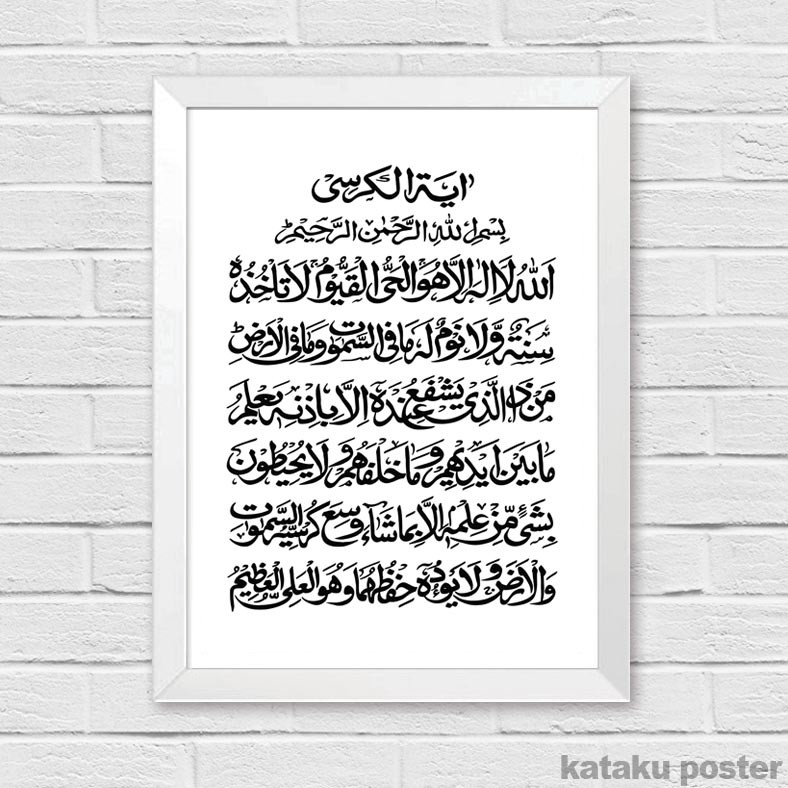 اية الكرسى
بِسْمِ اللهِ الرَّحْمٰنِ الرَّحِيْمِ
اَللهُ لَا اِلٰهَ اِلَّا هُوَ الْحَىُّ الْقَيُّوْمُ لَا تَاْخُذُهٗ
سِنَةٌ وَّلَا نَوْمٌ لَهٗ مَا فِى السَّمٰوٰتِ وَمَا فِى الْاَرْضِ
مَنْ ذَا الَّذِىْ يَشْفَعُ عِنْدَهٗ اِلَّا بِاِذْنِهٖ يَعْلَمُ
مَا بَيْنَ اَيْدِيْهِمْ وَمَا خَلْفَهُمْ وَلَا يُحِيْطُوْنَ
بِشَىْءٍ مِّنْ عِلْمِهٖ اِلَّا بِمَا شَآءَ وَسِعَ كُرْسِيُّهُ السَّمٰوٰتِ
وَالْاَرْضَ وَلَا يَئُوْدُهٗ حِفْظُهُمَا وَهُوَ الْعَلِىُّ الْعَظِيْمُ
kataku poster